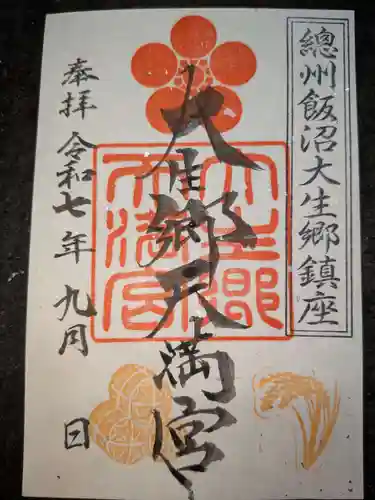 總州飯沼大生郷鎮座
大生郷天満宮
奉拝 令和七年 九月 日